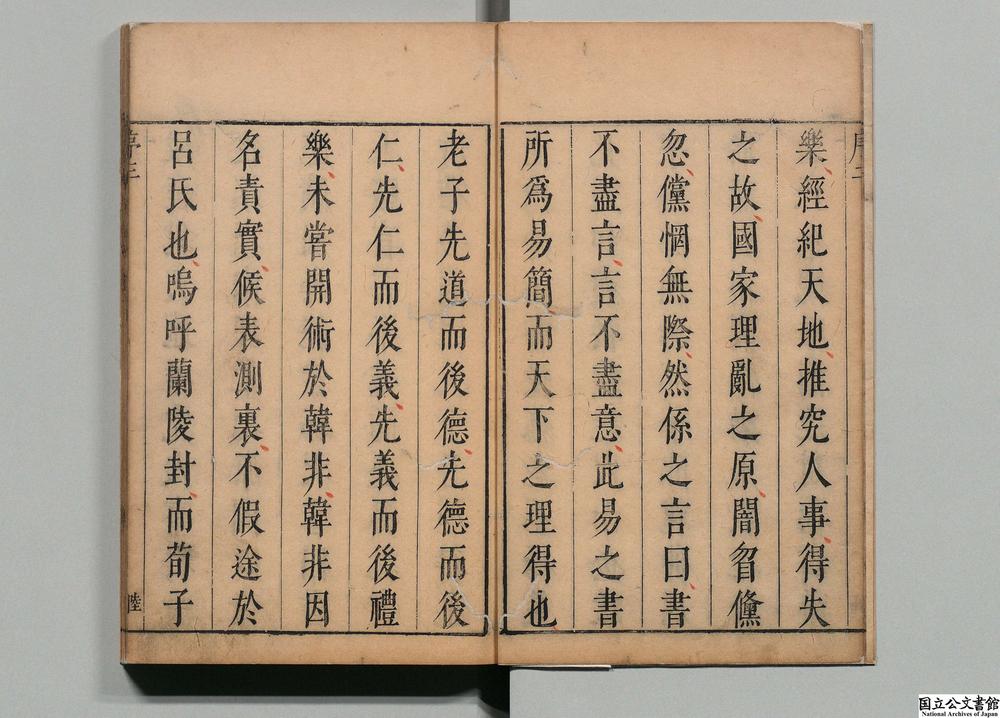 序二
樂經紀天地推究人事得失
之故國家理亂之原闇曶儻
忽儻惘無際然係之言曰書
不盡言言不盡意此易之書
所爲易簡而天下之理得也
老子先道而後德先德而後
仁先仁而後義先義而後禮
樂未甞開術於韓非韓非因
名責實候表測裏不假途於
呂氏也嗚呼蘭陵封而荀子
序三
陸
国立公文書館
National Archives of Japan